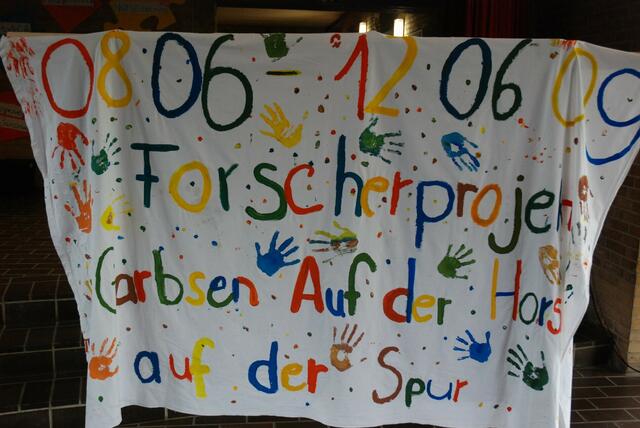 08.06 - 12.06.09
Forscherprojek
Carbsen Auf der Hors
auf der Spur